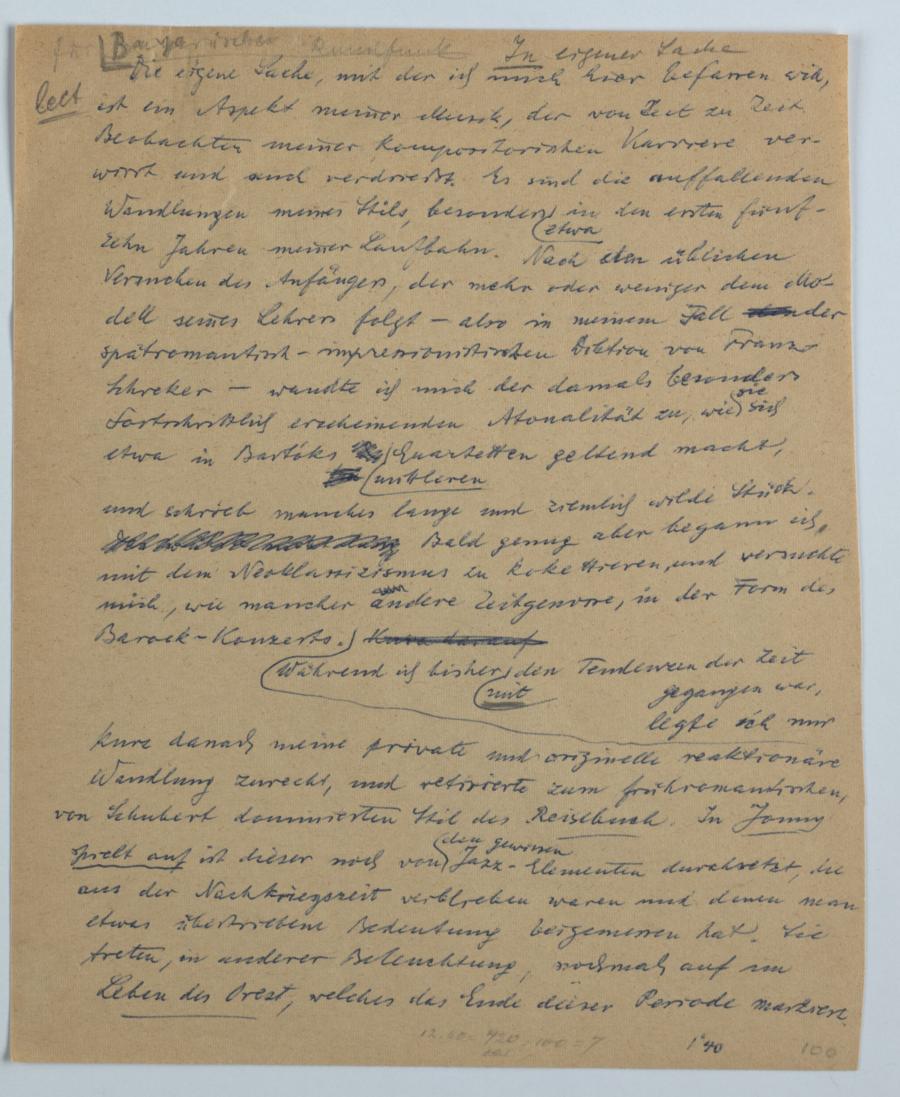 für Bayerischen Rundfunk In eigener Sache
Die eigene Sache, mit der ich mich hier befassen will,
ist ein Aspekt meiner Musik, der von Zeit zu Zeit
Beobachter meiner kompositorischen Karriere ver-
wirrt und auch verdriesst. Es sind die auffallenden
Wandlungen meines Stils, besonders in den ersten fünf-
etwa
zehn Jahren meiner Laufbahn. Nach den üblichen
Versuchen des Anfängers, der mehr oder weniger dem Mo-
dell seines Lehrers folgt – also in meinem Fall der
spätromantisch-impressionistischen Diktion von Franz
Schreker – wandte ich mich der damals besonders
sie
fortschrittlich erscheinenden Atonalität zu, wie sich
etwa in Bartóks Quartetten geltend macht,
mittleren
und schrieb manches lange und ziemlich wilde Stück.
Bald genug aber begann ich,
mit dem Neoklassizismus zu kokettieren, und versuchte
mich, wie mancher andere Zeitgenosse, in der Form des
Barock-Konzerts. Kurz darauf
Während ich bisher den Tendenzen der Zeit
mit gegangen war,
legte ich mir
kurz danach meine private und originelle reaktionäre
Wandlung zurecht, und retirierte zum frühromantischen,
von Schubert dominierten Stil des Reisebuch. In Jonny
den gewissen
spielt auf ist dieser noch von Jazz-Elementen durchsetzt, die
aus der Nachkriegszeit verblieben waren und denen man
etwas übertriebene Bedeutung beigemessen hat. Sie
treten, in anderer Beleuchtung, nochmals auf im
Leben des Orest, welches das Ende dieser Periode markiert.
1'40 100